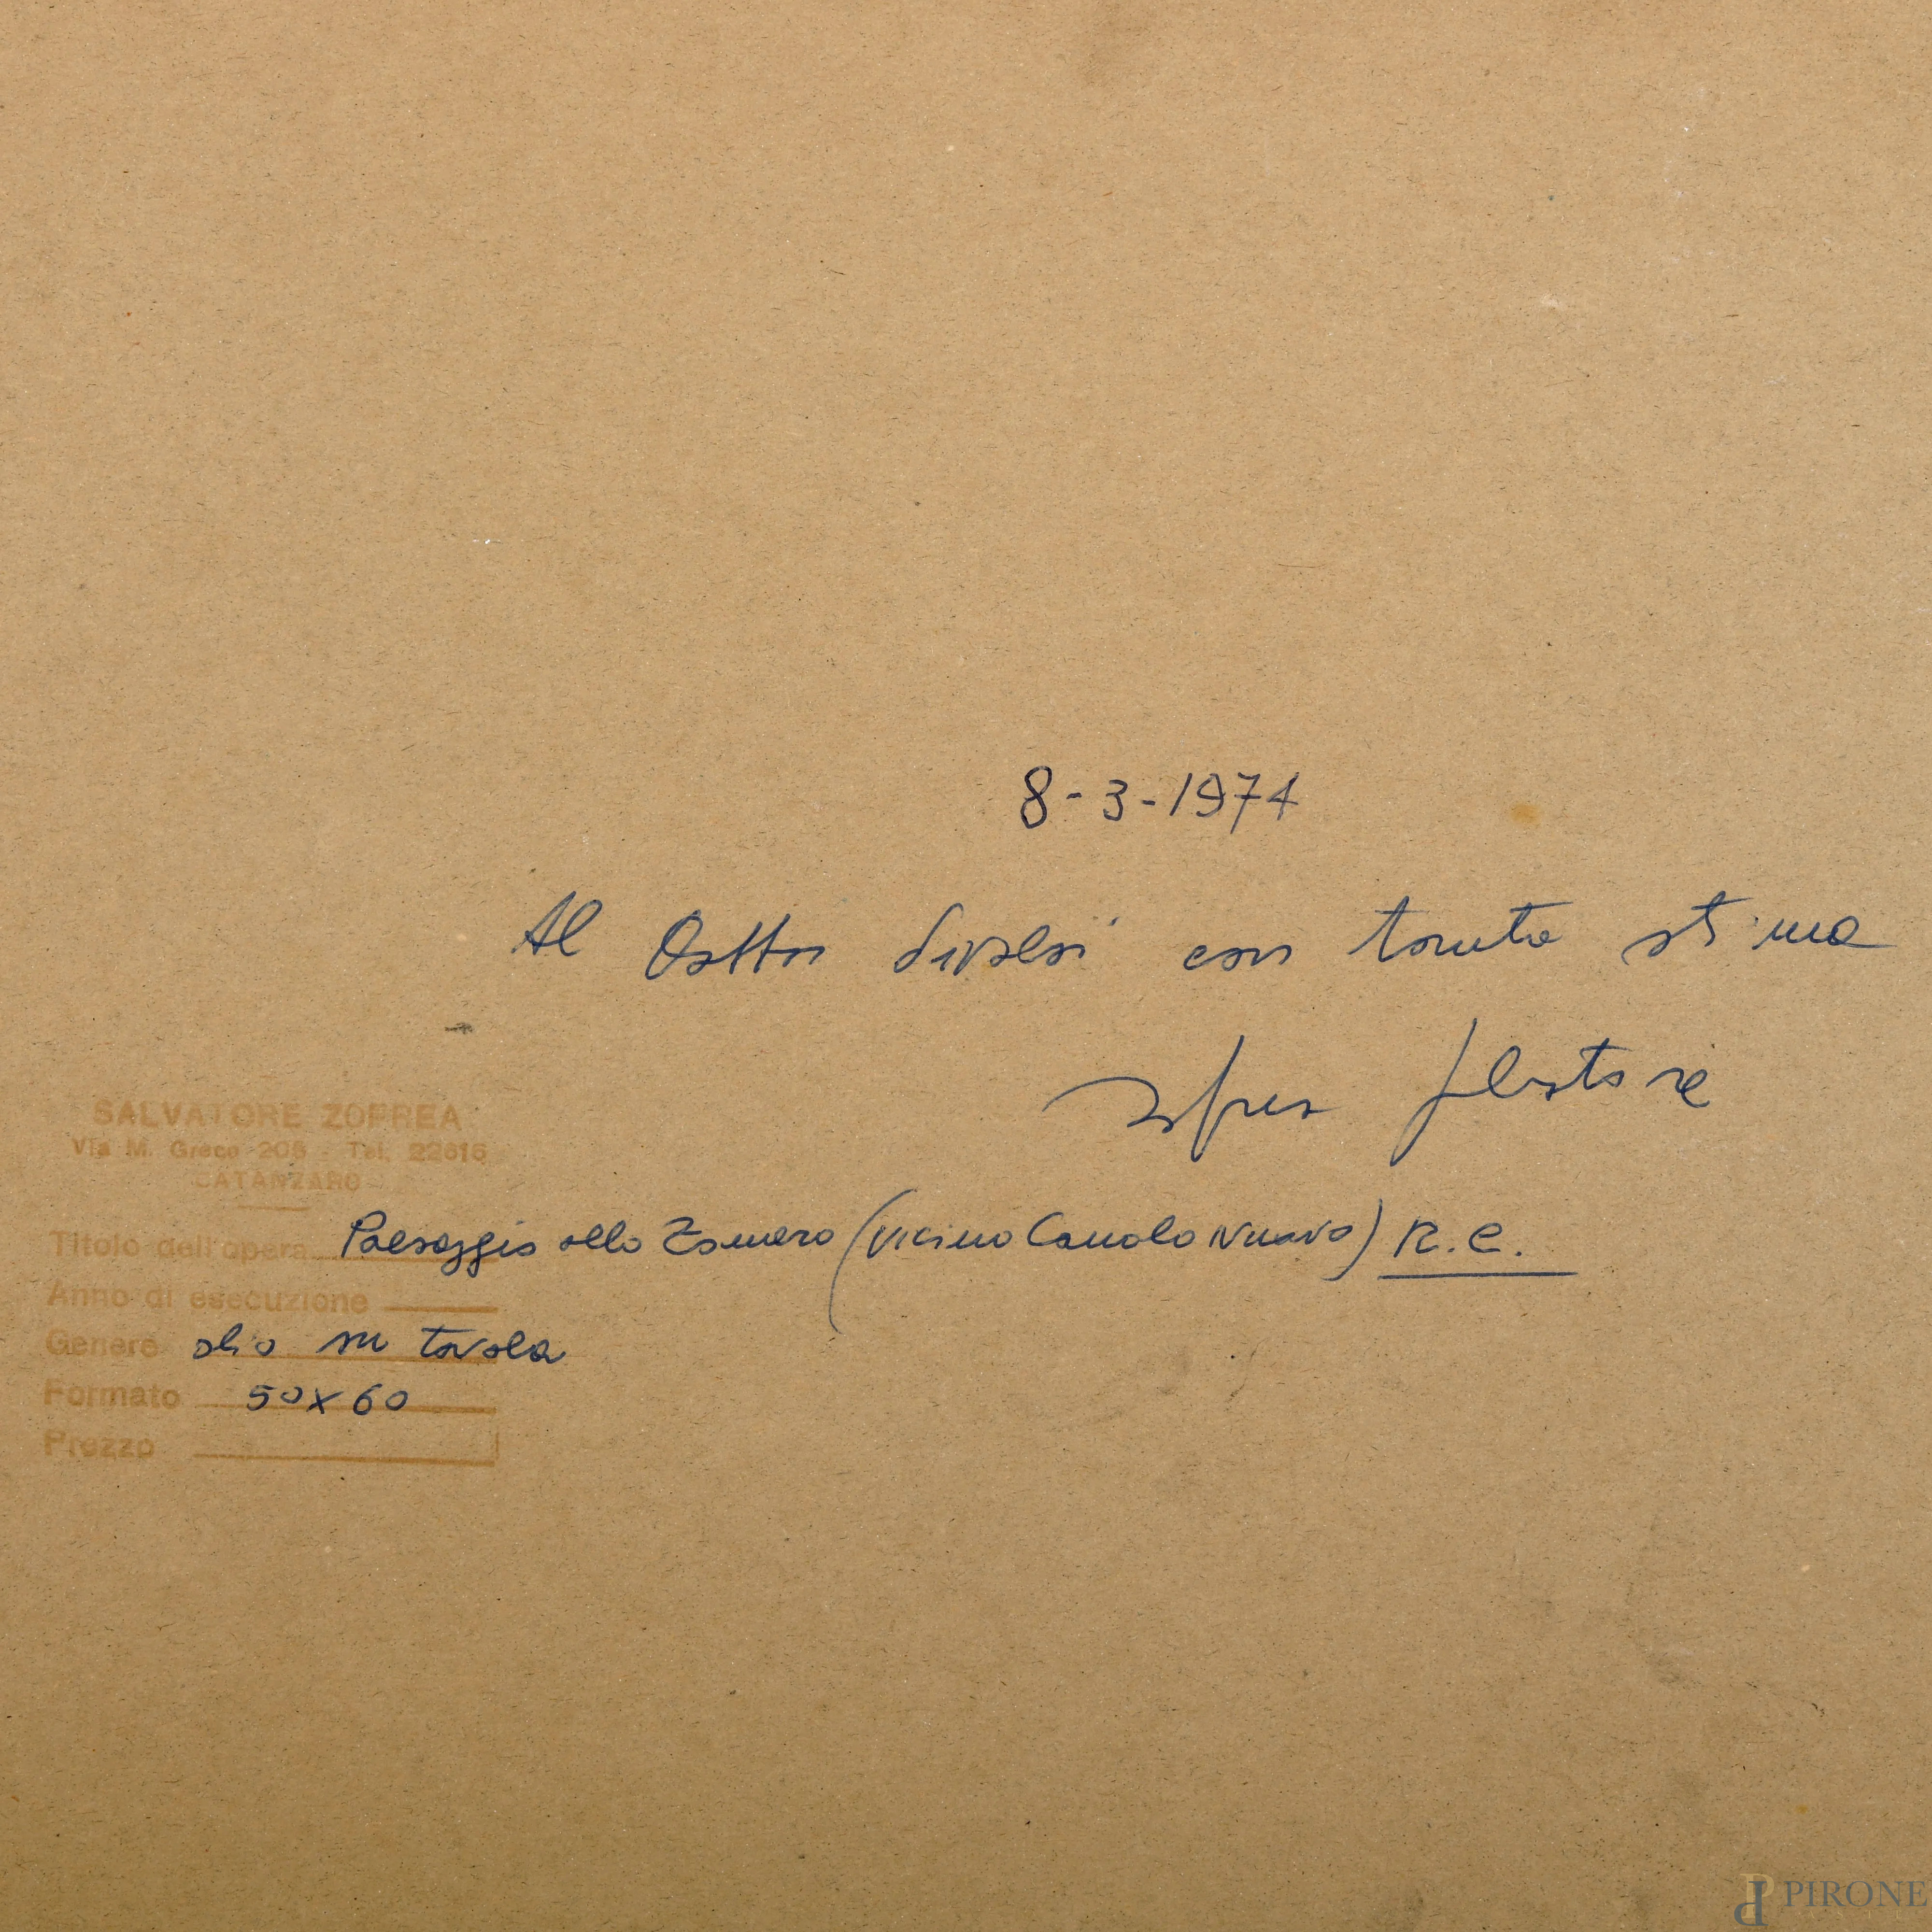 8-3-1974
Al Dottor con tanta stima
Zofrea
SALVATORE ZOFREA
Via M. Greco 206 - Tel. 22616
CATANZARO
Titolo dell'opera Paesaggio allo Zomaro (vicino Canolo Nuovo) R.C.
Anno di esecuzione
Genere olio su tavola
Formato 50x60
Prezzo
PIRONE